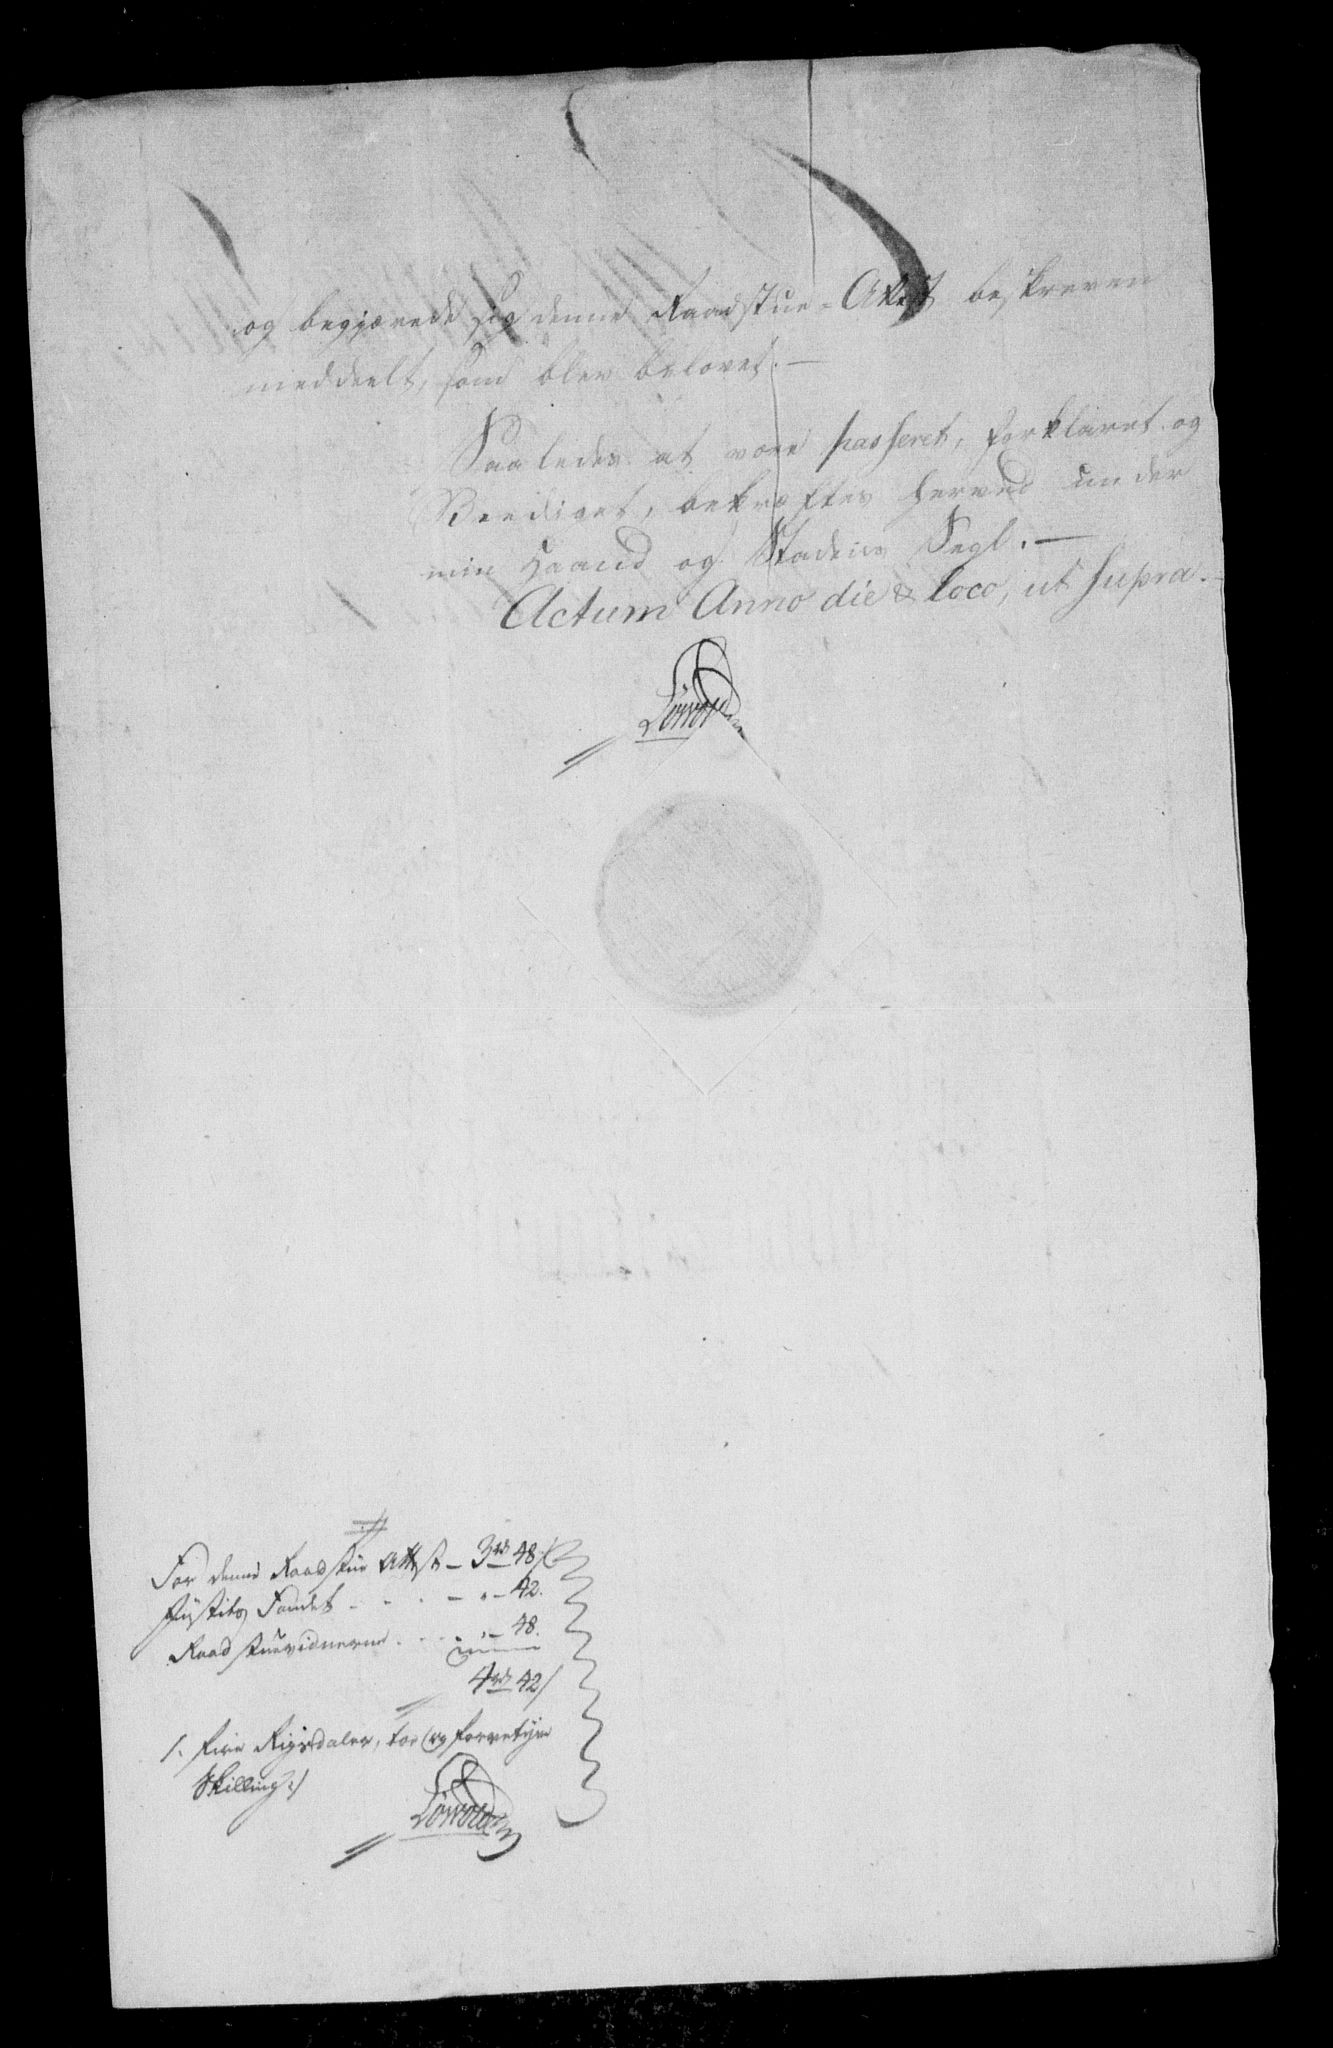 og begjærede sig denne Raadstue-Attest beskreven
meddeelt, som blev belovet. —
Saaledes at være passeret, forklaret og
Beediget, bekræftes herved under
min Haand og Stadens Segl. —
Actum Anno die & loco, ut supra. —
For denne Raadstue Attst — 3 rd 48 s
Justits Fondet - - - - „ — 42.
Raadstuevidnerne . . . . „ — 48.
4 rd 42 s
/: Fire Rigsdaler, toe og førretyve
Skilling :/